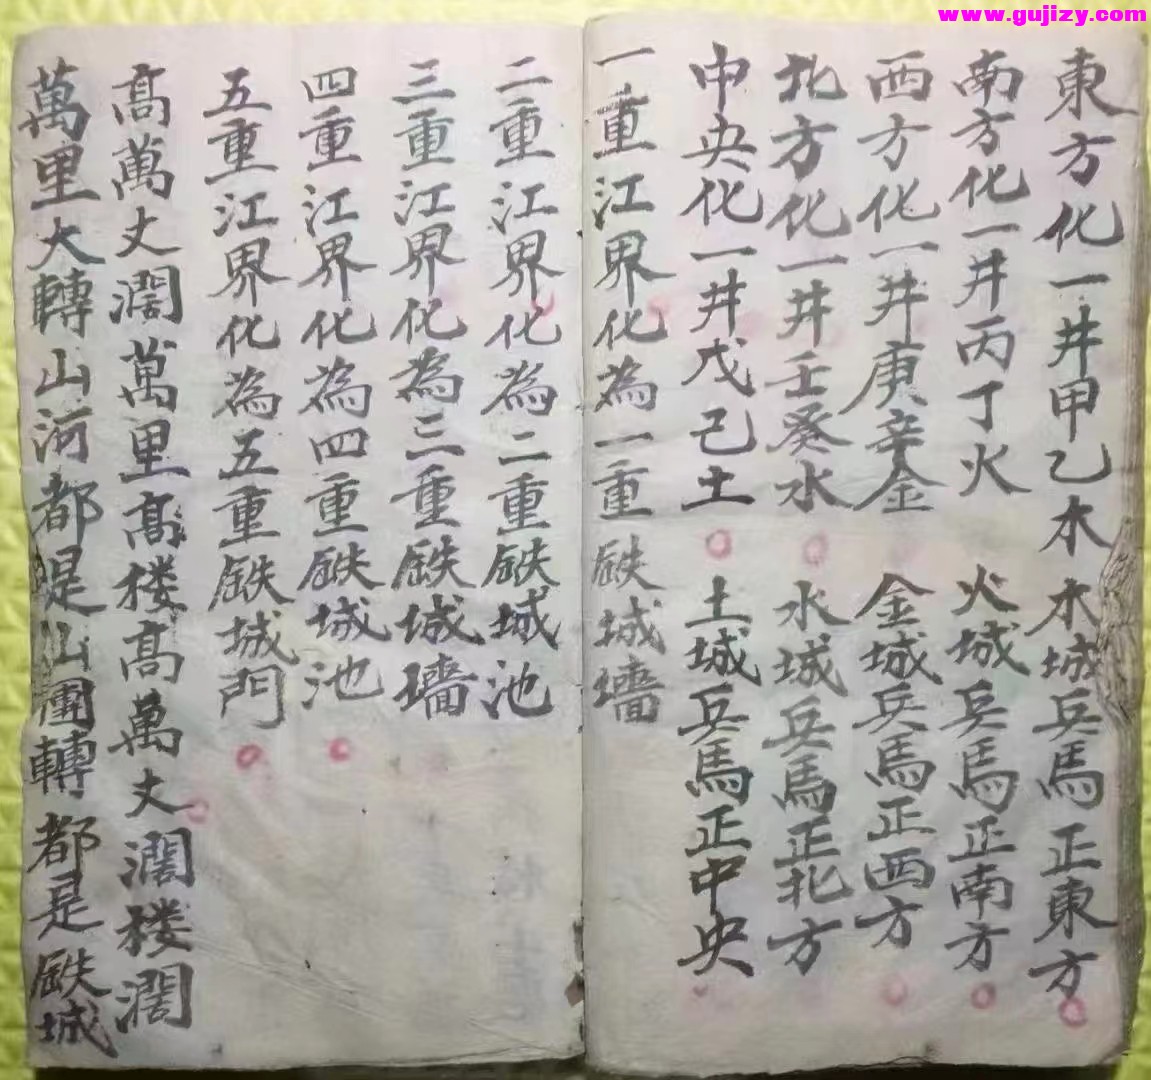 www.gujizy.com
東方化一井甲乙木 木城兵馬正東方
南方化一井丙丁火 火城兵馬正南方
西方化一井庚辛金 金城兵馬正西方
北方化一井壬癸水 水城兵馬正北方
中央化一井戊己土 土城兵馬正中央
一重江界化為一重鉄城墻
二重江界化為二重鉄城池
三重江界化為三重鉄城墻
四重江界化為四重鉄城池
五重江界化為五重鉄城門
髙萬丈濶萬里髙楼髙萬丈濶楼濶
萬里大轉山河都是山團轉都是鉄城